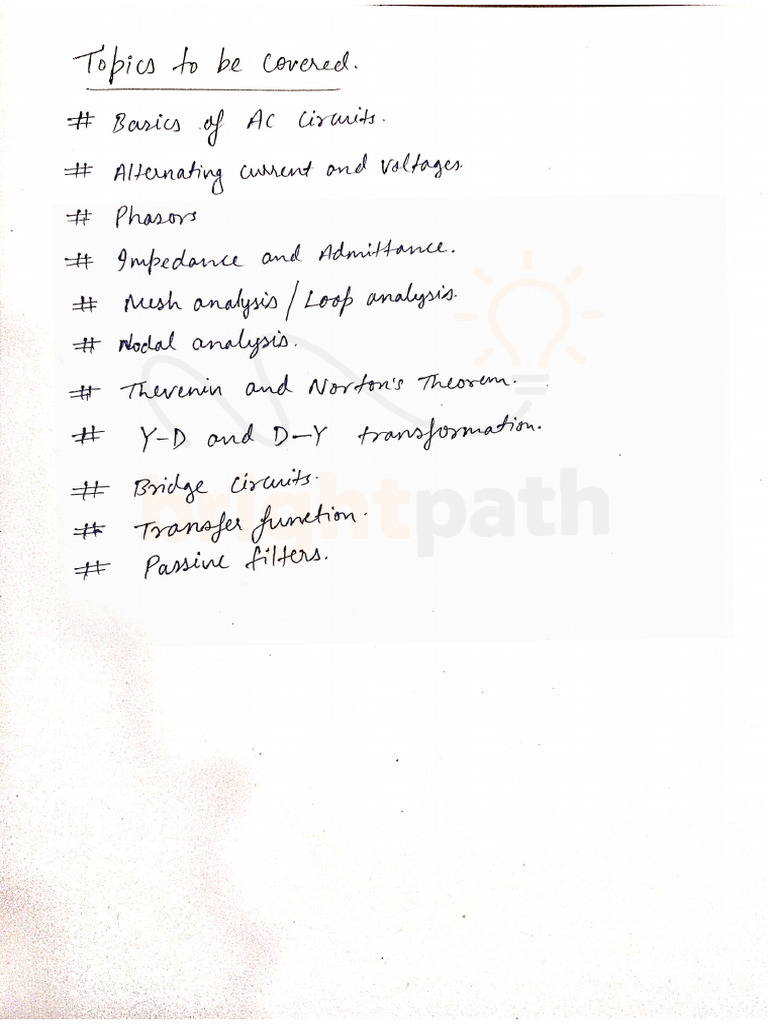 Topics to be covered.
# Basics of AC Circuits.
# Alternating current and voltages.
# Phasors
# Impedance and Admittance.
# Mesh analysis / Loop analysis.
# Nodal analysis.
# Thevenin and Norton's Theorem.
# Y-D and D-Y transformation.
# Bridge Circuits.
# Transfer function.
# Passive filters.
brightpath